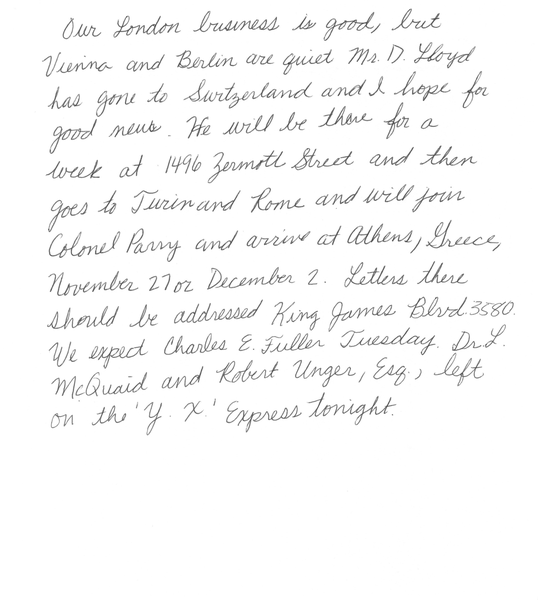 Our London business is good, but
Vienna and Berlin are quiet Mr. D. Lloyd
has gone to Switzerland and I hope for
good news. He will be there for a
week at 1496 Zermott Street and then
goes to Turin and Rome and will join
Colonel Parry and arrive at Athens, Greece,
November 27 or December 2. Letters there
should be addressed King James Blvd. 3580.
We expect Charles E. Fuller Tuesday. Dr. L.
McQuaid and Robert Unger, Esq., left
on the 'Y. X.' Express tonight.